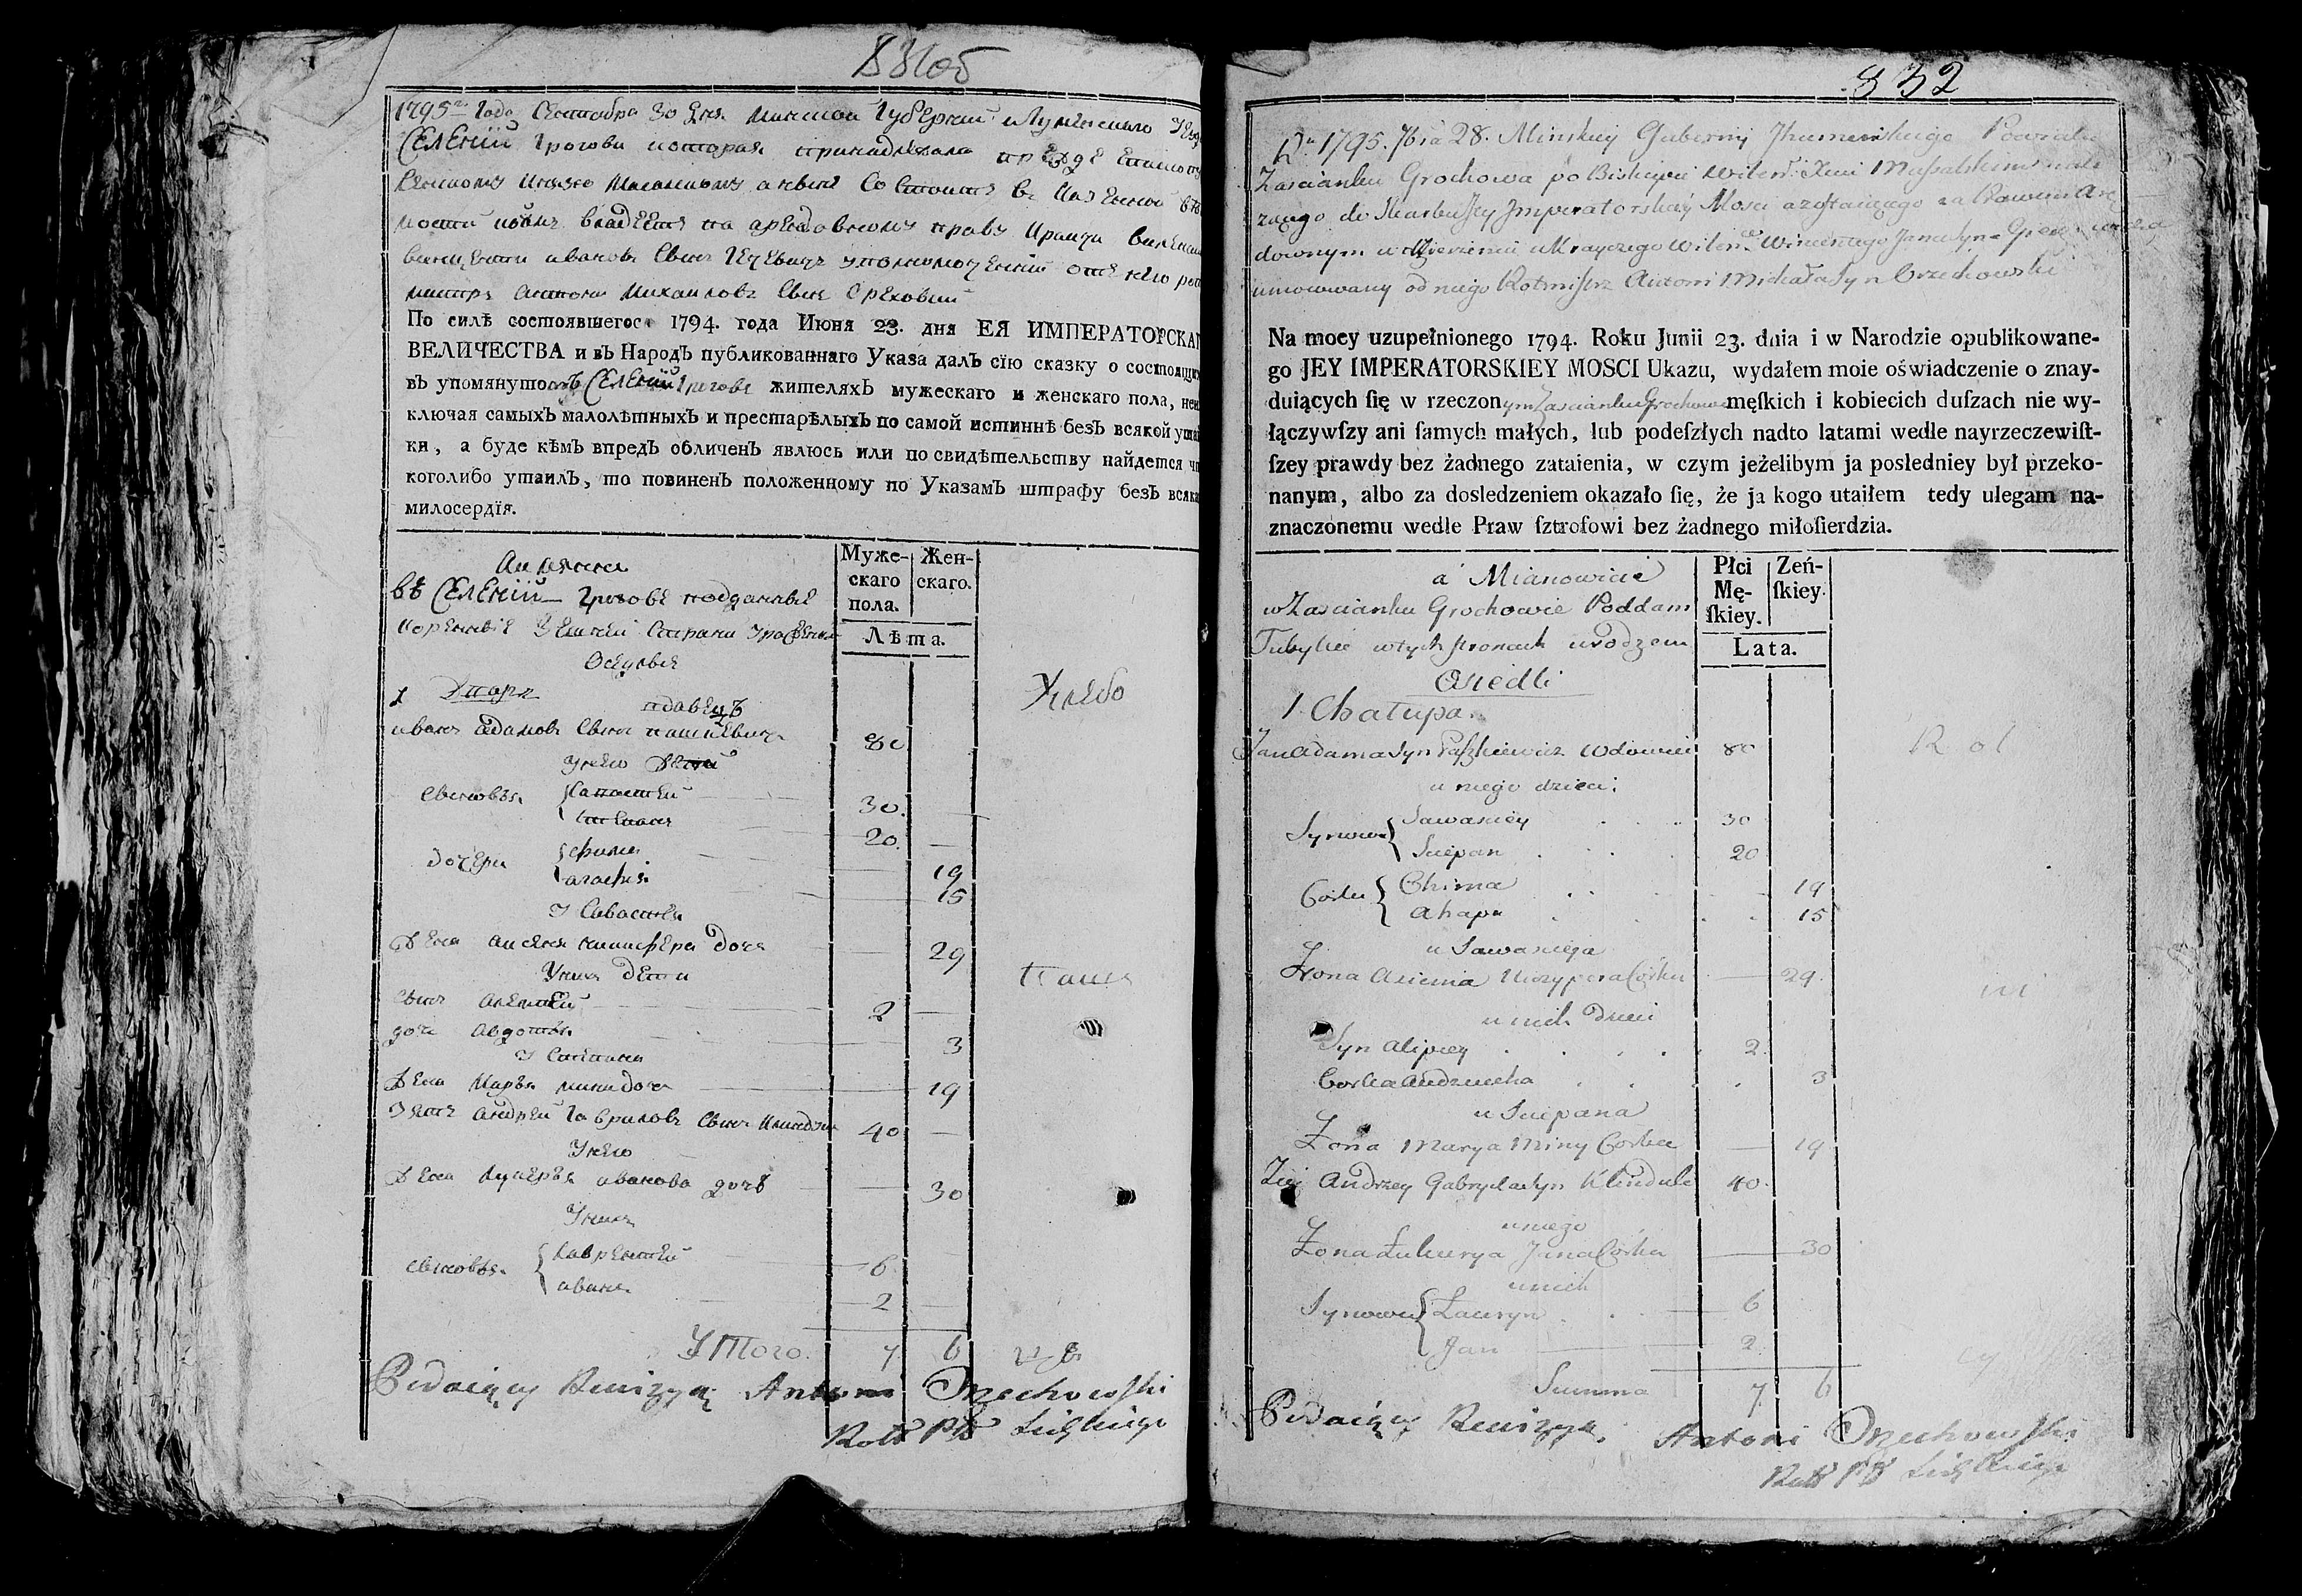 831об
1795го Года Сентября 30 дня Минской Губернии Игуменского
Селении Грохови которая принадлежала прежде
Князю Масалскому а ныне Состоитъ въ Казенной
ности коимъ владеетъ по арендовному праву
Викенти Ивановъ Сынъ уполномоченный отъ него
Антони Михаиловъ Сынъ Ореховский
По силѣ состоявшегося 1794. года Июня 23. дня ЕЯ ИМПЕРАТОРСКАГ
ВЕЛИЧЕСТВА и въ Народъ публикованнаго Указа далъ сїю сказку о состоящих
въ упомянутомъ Селении Грохове жителяхъ мужескаго и женскаго пола, неи
ключая самыхъ малолѣтныхъ и престарѣлыхъ по самой истиннѣ безъ всякой ута
ки, а буде кѣмъ впредъ обличенъ явлюсь или по свидѣтельству найдется чт
коголибо утаилъ, то повиненъ положенному по Указамъ штрафу безъ всяка
милосердїя.
А имянно
въ Селении Грохове подданные
коренные здешней Стараны урожен
Оседлые
Муже-скаго пола. Жен-скаго.
Лѣта.
1 Двора
вдовецъ
Иванъ Адамовъ Сынъ Пашкевичъ 80
Хлебо
у него дети
Сыновья { Савастей 30.
Степанъ 20.
дочери { Фима 19
Агафия 15
У Савастея
Жена Аксеня Никифера дочь 29
У нихъ дети
Паше
Сынъ Алентей 2
дочь Авдотья 3
У Степана
Жена Марья Мини дочь 19
Зять Андрей Гавриловъ Сынъ 40
У него
Жена Лукерья Иванова дочь 30
У нихъ
Сыновья { Лаврентей 6
Иванъ 2
Итого. 7 6
Podaiący Rewizyą Antoni Orzechowski
Rott Ptt
832
1795. 7bra 28. Minskiey Gubernij Jhumenskiego Powiatu
Zascianku Grochowa po Biskupie Wileń: Xciu Massalskim nale
zącego do Skarbu Jey Jmperatorskiey Mosci a zostaiącego za Prawem Are
downym w dzierżeniu Krayczego Wileń Wincentego Jana Syna
umocowany od niego Rotmistrz Antoni Michała Syn Orzechowski
Na mocy uzupełnionego 1794. Roku Junii 23. dnia i w Narodzie opublikowane-
go JEY IMPERATORSKIEY MOSCI Ukazu, wydałem moie oświadczenie o znay-
duiących ſię w rzeczonym Zascianku Grochowie męſkich i kobiecich duſzach nie wy-
łączywſzy ani ſamych małych, lub podeſzłych nadto latami wedle nayrzeczewiſt-
ſzey prawdy bez żadnego zataienia, w czym jeżelibym ja posledniey był przeko-
nanym, albo za dosledzeniem okazało ſię, że ja kogo utaiłem tedy ulegam na-
znaczonemu wedle Praw ſztrofowi bez żadnego miłoſierdzia.
a Mianowicie
w Zascianku Grochowie Poddani
Tubylcie w tych stronach urodzeni
Osiedli
Płci Mę-ſkiey. Zeń-ſkiey.
Lata.
1 Chałupa.
Jan Adama Syn Paszkiewicz Wdowiec 80
Rol
u niego dzieci:
Synowie { Sawaściey 30
Sciepan 20
Corki { Chima 19
Ahapa 15
u Sawascieja
Żona Axienia Niczypora Corka 29.
ni
u nich Dzieci
Syn Alipiey 2
Corka Audziucha 3
u Sciepana
Żona Marya Miny Corka 19
Zięć Andrzey Gabryela Syn 40.
u niego
Żona Łukierya Jana Corka 30
u nich
Synowie { Ławryn 6
Jan 2
cy
Summa 7 6
Podaiący Rewizyą. Antoni Orzechowski
Rott Ptt